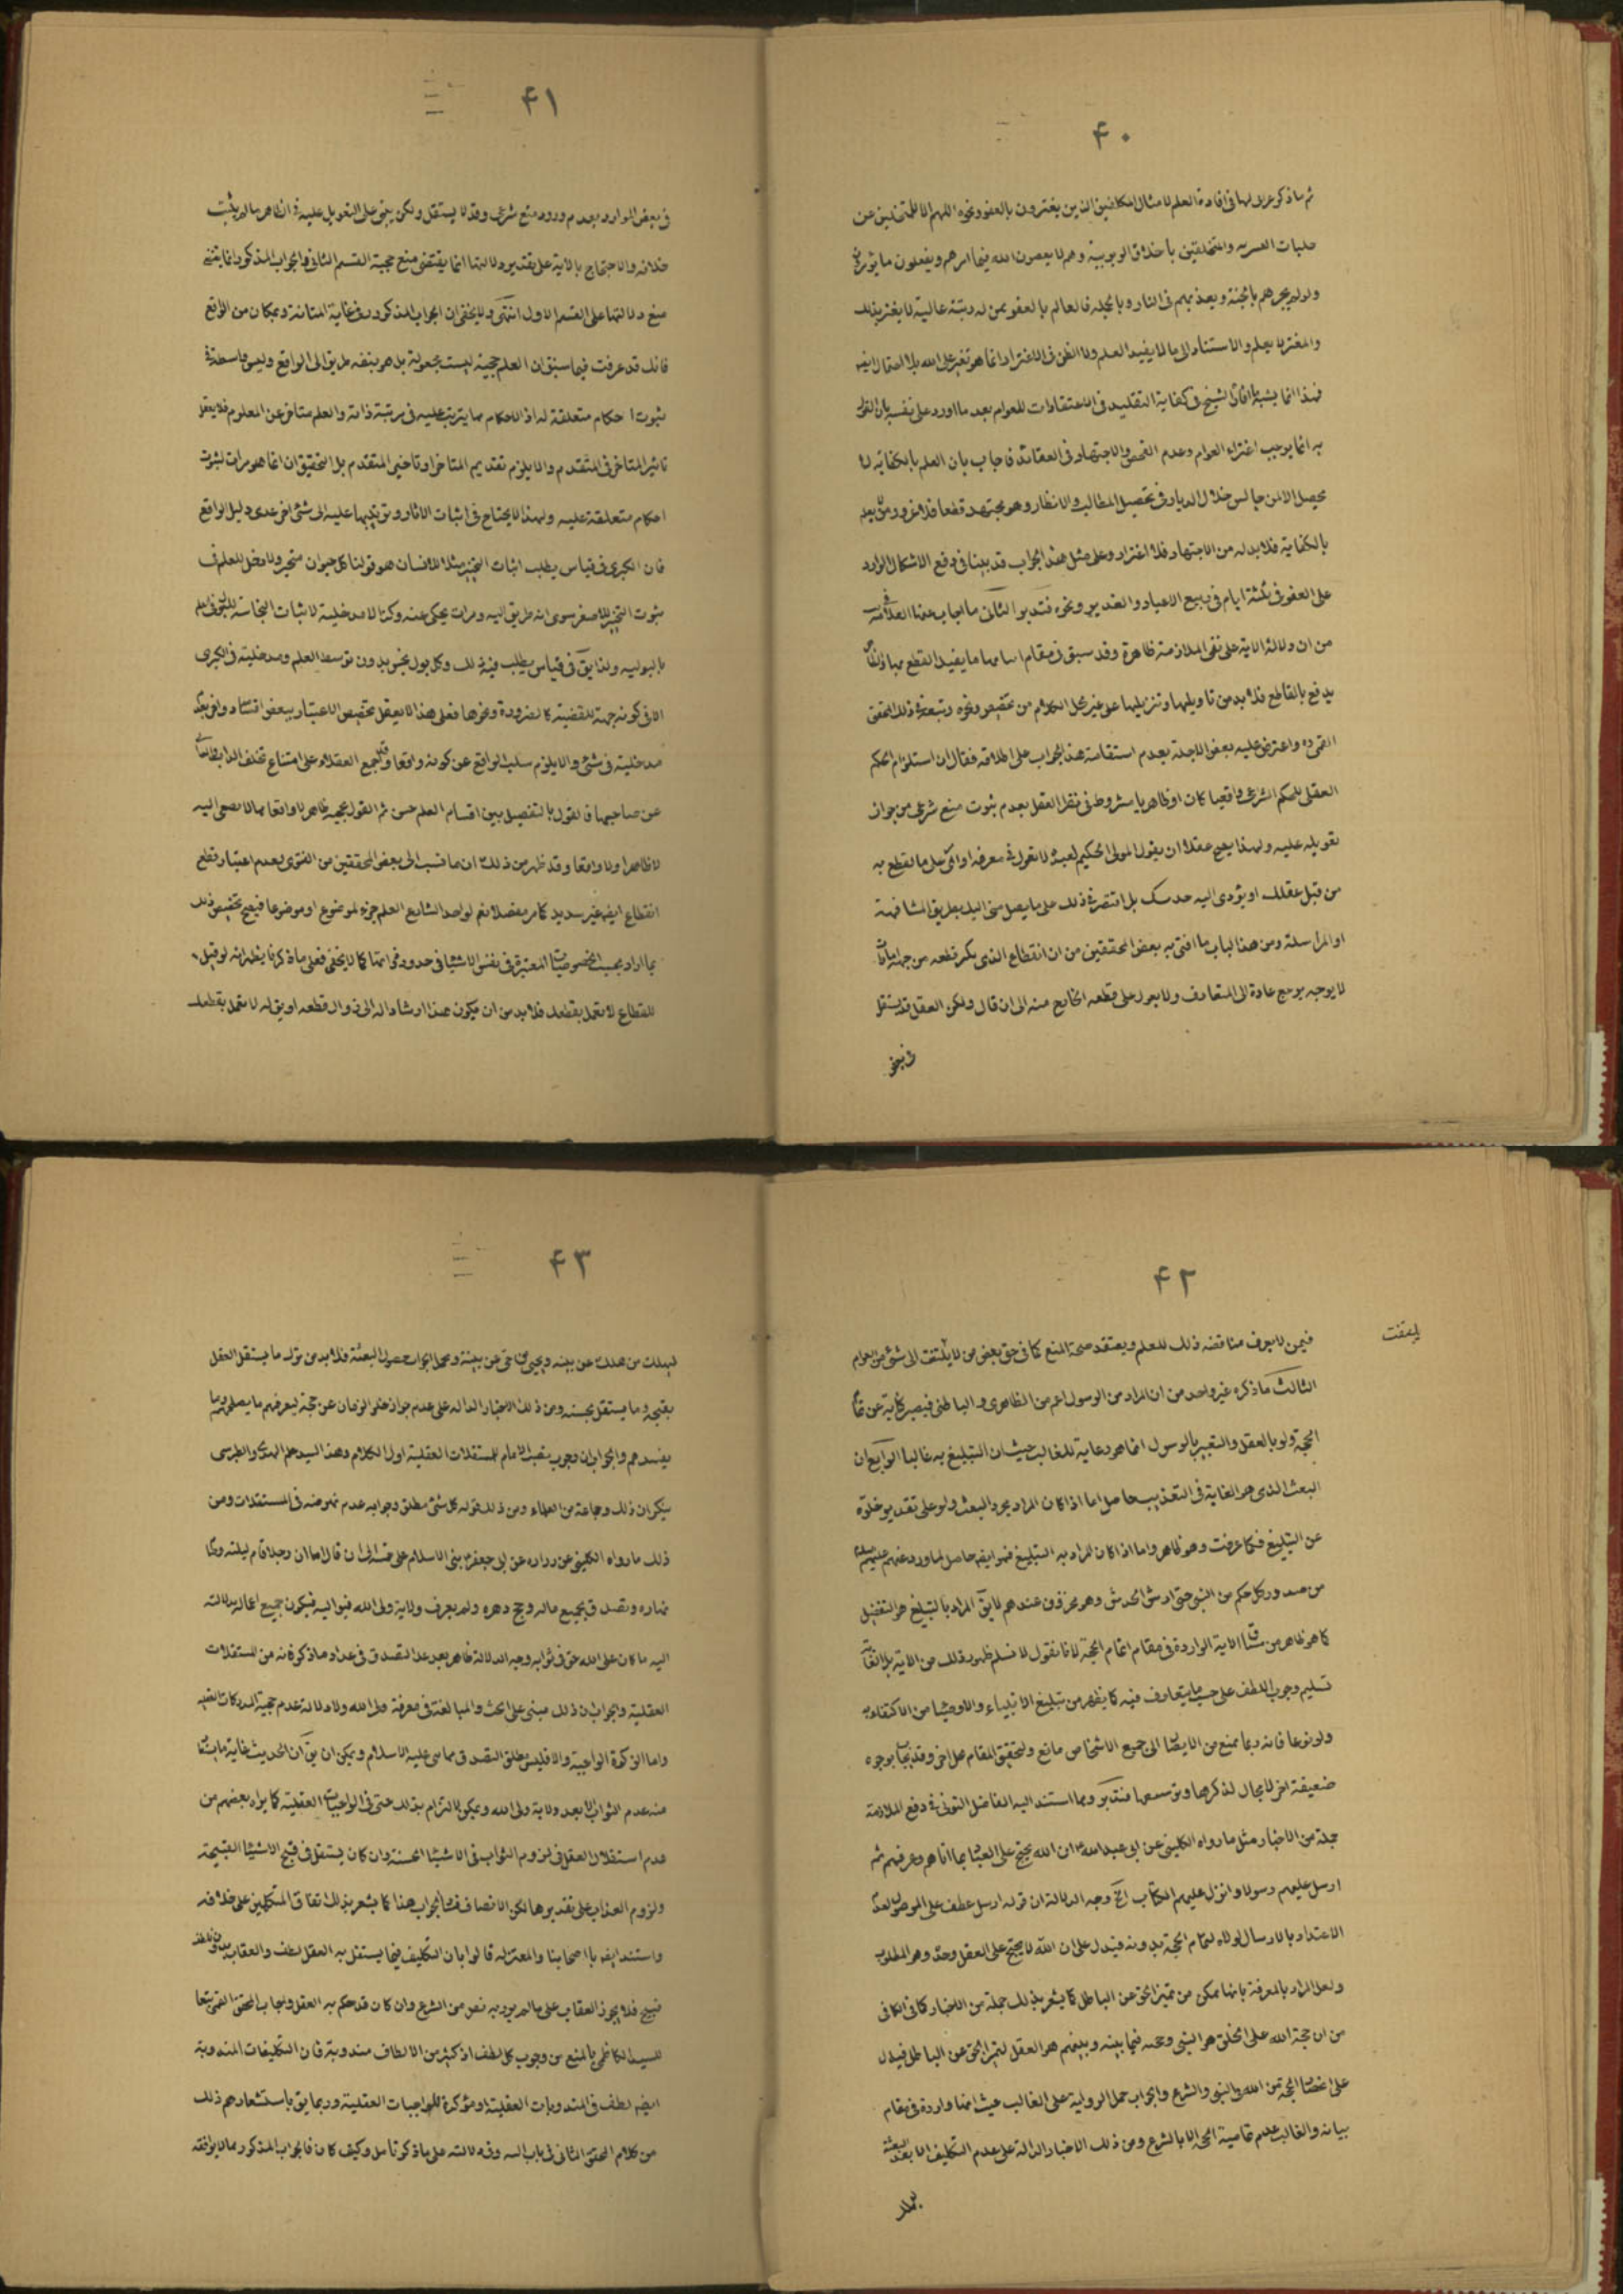 ۴۰
ثم ما ذكره لو لها فى افادة العلم لامثال المكلفين الذين يغترون بالعفو ونحوه اللهم الا المتخلين عن
جلبات البشريه والمتخلقين باخلاق الربوبية وهم لا يعصون الله فيما امرهم ويفعلون ما يؤمرون
ولو لم يجزهم بالجنة ويعذبهم فى النار وبالجمله فالعالم بالعفو ممن له رتبة عالية لا يغتر بذلك
والمغتر لا يعلم والاستناد الى ما لا يفيد العلم ولا الظن فى الاغترار انما هو تغير على الله بلا احتمال ايضا
فهذا انما يشبه افاد الشيخ فى كفاية التقليد فى الاعتقادات للعوام بعد ما اورد على نفسه بان القول
به انما يوجب اغتراء العوام وعدم الفحص والاجتهاد فى العقائد فاجاب بان العلم بالكفاية لا
يحصل الا لمن جالس خلال الديار فى تحصيل المطالب والانظار وهو مجتهد قطعا فلا غرور ومن لم يعلم
بالكفاية فلا بد له من الاجتهاد فلا اغترار وعلى مثل هذا الجواب قد بينا فى دفع الاشكال الوارد
على العفو فى ثلثة ايام فى ربيع الاعياد والغدير ونحوه فتدبر الثانى ما اجاب عنها العلامة
من ان دلالة الاية على نفى الملازمة ظاهرة وقد سبق فى مقام اساسها ما يفيد القطع بها والظاهر
يدفع بالقاطع فلا بد من تاويلها وتنزيلها على غير محل الكلام من تخصيص ونحوه وتبعه فى ذلك المحقق
القمى ره واعترض عليه بعض الاجلة بعدم استقامة هذا الجواب على اطلاقه فقال ان استلزام الحكم
العقلى للحكم الشرعى واقعيا كان او ظاهريا مشروط فى نظر العقل بعدم ثبوت منع شرعى من جواز
تعويله عليه ولهذا يصح عقلا ان يقول المولى الحكيم لعبده لا تعول فى معرفة اوامرى على ما تقطع به
من قبل عقلك او يؤدى اليه حدسك بل اقتصر فى ذلك على ما يصل منى اليك بطريق المشافهة
او المراسلة ومن هذا الباب ما افتى به بعض المحققين من ان القطاع الذى يكثر قطعه من جهة امارات
لا يوجبه يرجع عادة الى المتعارف ولا يعول على قطعه الخارج منه الى ان قال ولكن العقل قد يستقل
۴۱
فى بعض الموارد بعدم ورود منع شرعى وقد لا يستقل ولكن يبنى على التعويل عليه فى الظاهر ما لم يثبت
خلافه والاحتجاج بالاية على تقدير دلالتها انما يقتضى منع حجية القسم الثانى والجواب المذكور انما يقتضى
منع دلالتها على القسم الاول انتهى ولا يخفى ان الجواب المذكور فى غاية المتانة وبمكان من الواقع
فانك قد عرفت فيما سبق ان العلم حجية ليست بجعولة بل هو بنفسه طريق الى الواقع وليس واسطة فى
ثبوت احكام متعلقة له اذ الاحكام مما يترتب عليه فى مرتبة ذاته والعلم متاخر عن المعلوم فلا يعقل
تاثير المتاخر فى المتقدم والا يلزم تقديم المتاخر او تاخير المتقدم بل التحقيق ان انما هو مرات لثبوت
احكام متعلقة عليه ولهذا لا يحتاج فى اثبات الاثار وترتيبها عليه الى شئ اخر عدى دليل الواقع
فان الكبرى فى قياس يطلب اثبات التحيز مثلا للانسان هو قولنا كل حيوان متحيز ولا دخل للعلم فى
ثبوت التحيز للاصغر سوى انه طريق اليه ومرات يحكى عنه وكذا لا مدخلية لاثبات النجاسة للبول فى العلم
بالبولية ولذا يق فى قياس يطلب فيه ذلك وكل بول نجس بدون توسط العلم ومدخليته فى الكبرى
الا فى كونه جهة للقضية كالضرورة ونحوها فعلى هذا لا يعقل تخصيص الاعتبار ببعض افراده ولو بعد
مدخليته فى شئ والا يلزم سلب الواقع عن كونه واقعا وقد اجمع العقلاء على امتناع تخلف الذاتيات
عن صاحبها فالقول بالتفصيل بين اقسام العلم حسن ثم القول بحجيه ظاهرا لا واقعا مما لا يصغى اليه
لا ظاهرا ولا واقعا وقد ظهر من ذلك ان ما نسب الى بعض المحققين من الفتوى بعدم اعتبار قطع
القطاع ايضا غير سديد كما مر مفصلا نعم لو اخذ الشارع العلم جزء لموضوع او موضوعا فيصح تخصيص ذلك
بما اراد بحسب الخصوصيات المعتبرة فى نفس الاشياء فى حدود ذواتها كما لا يخفى فعلى ما ذكرنا يظهر انه لو قيل
للقطاع لا تعمل بقطعك فلا بد من ان يكون هذا ارشادا له الى زوال قطعه او يق له لا تعمل بقطعك
۴۲
يلتفت
فيمن لا يعرف مناقضه ذلك للعلم ويعتقد صحة المنع كما فى حق بعض من لا يلتفت الى شئ من العوام
الثالث ما ذكره غير واحد من ان المراد من الرسول اعم من الظاهرى والباطنى فيصير كناية عن تمام
الحجة ولو بالعقل والتعبير بالرسول انما هو رعاية للغالب حيث ان التبليغ به غالبا الرابع ان
البعث الذى هو الغاية فى التعذيب حاصل اما اذا كان المراد مجرد البعث ولو على تقدير خلوه
عن التبليغ فكما عرفت وهو ظاهر واما اذا كان المراد به التبليغ فهو ايضا حاصل لما ورد عنهم عليهم السلام
من صدور كل حكم من النبى حتى ارش الخدش وهو مخزون عندهم لا يق المراد بالتبليغ هو التفصيل
كما هو ظاهر من سياق الاية الواردة فى مقام اتمام الحجة لانا نقول لا نسلم ظهور ذلك من الاية بل الغاية
تسليم وجوب اللطف على حسب ما يتعارف فيه كما يظهر من تبليغ الانبياء والاوصيا من الاكتفاء به
ولو نوعا فانه ربما يمنع من الايصال الى جميع الاشخاص مانع ولتحقيق المقام محل اخر وقد يجاب بوجوه
ضعيفة اخر لا مجال لذكرها وتوسعها فتدبر ومما استند اليه الفاضل التونى فى دفع الملازمة
جملة من الاخبار مثل ما رواه الكلينى عن ابى عبد الله ان الله يحتج على العباد بما اتاهم وعرفهم ثم
ارسل عليهم رسولا وانزل عليهم الكتاب الخ وجه الدلالة ان قوله ارسل عطف على الموصول لعدم
الاعتداد بالارسال لولاه لتمام الحجة بدونه فيدل على ان الله لا يحتج على العقل وحده وهو المطلوب
ولعل المراد بالمعرفة بانها تمكن من تميز الحق عن الباطل كما يشعر بذلك جملة من الاخبار كما فى الكافى
من ان حجة الله على الخلق هو النبى وحجه فيما بينه وبينهم هو العقل لتميز الحق عن الباطل فيدل
على انحصار الحجة من الله فى النبى والشرع والجواب حمل الرواية على الغالب حيث انها واردة فى مقام
بيانه والغالب عدم تمامية الحجة الا بالشرع ومن ذلك الاخبار الدالة على عدم التكليف الا بعد البعثة
۴۳
ليهلك من هلك عن بينه ويحيى من حى عن بينة ومحل الجواب حصول البعثة فلا بد من ترك ما يستقل العقل
بقبحه وما يستقل بحسنه ومن ذلك الاخبار الداله على عدم جواز خلو الزمان عن حجة ليعرفهم ما يصلحهم وما
يفسدهم والجواب ان وجوب نصب الامام للمستقلات العقلية اول الكلام وهذا السيد علم الهدى والطبرسى
ينكران ذلك وجماعة من العلماء ومن ذلك قوله كل شئ مطلق وجوابه عدم نهوضه فى المستقلات ومن
ذلك ما رواه الكلينى عن زراره عن ابى جعفر بنى الاسلام على خمسة الى ان قال اما ان رجلا قام ليلته وصام
نهاره وتصدق بجميع ماله وحج دهره ولم يعرف ولاية ولى الله فيواليه فيكون جميع اعماله بدلالته
اليه ما كان على الله حق فى ثوابه وجه الدلالة ظاهر بعد عد التصدق فى عداد ما ذكر فانه من المستقلات
العقلية والجواب ان ذلك مبنى على الحث والمبالغة فى معرفة ولى الله ولا دلالة عدم حجية المدركات العقليه
واما الزكوة الواجبة والا فليس مطلق التصدق مما بنى عليه الاسلام ويمكن ان يق ان الحديث غاية ما يستفاد
منه عدم الثواب الا بعد ولاية ولى الله ويمكن الالتزام بذلك حتى فى الواجبات العقلية كما يراه بعضهم من
عدم استقلال العقل فى لزوم الثواب فى الاشياء الحسنة وان كان يستقل فى قبح الاشياء القبيحة
ولزوم العذاب على تقديرها لكن الانصاف فساد الجواب هذا كما يشعر بذلك اتفاق المتكلمين على خلافه
واستند ايضا بان اصحابنا والمعتزله قالوا بان التكليف فيما يستقل به العقل لطف والعقاب بدون اللطف
قبيح فلا يجوز العقاب على ما لم يرد به نص من الشرع وان كان قد حكم به العقل واجاب المحقق القمى تبعا
للسيد الكاظمى بالمنع من وجوب كل لطف اذ كثير من الالطاف مندوبة فان التكليفات المندوبة
ايضا لطف فى المندوبات العقلية او مؤكدة للواجبات العقلية وربما يق باستشعارهم ذلك
من كلام المحقق الثانى فى باب النيه وفى دلالته على ما ذكر تامل وكيف كان فالجواب المذكور مما لا يوافقه